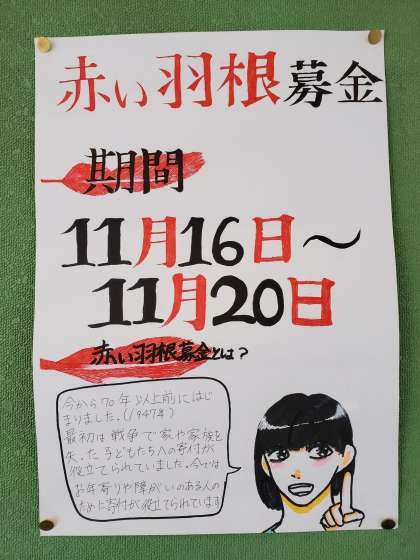 赤い羽根募金
期間
11月16日〜
11月20日
赤い羽根募金とは？
今から70年以上前にはじ
まりました。(1947年)
最初は戦争で家や家族を
失った子どもたちへの寄付が
役立てられていました。今では
お年寄りや障がいのある人の
ために寄付が役立てられています